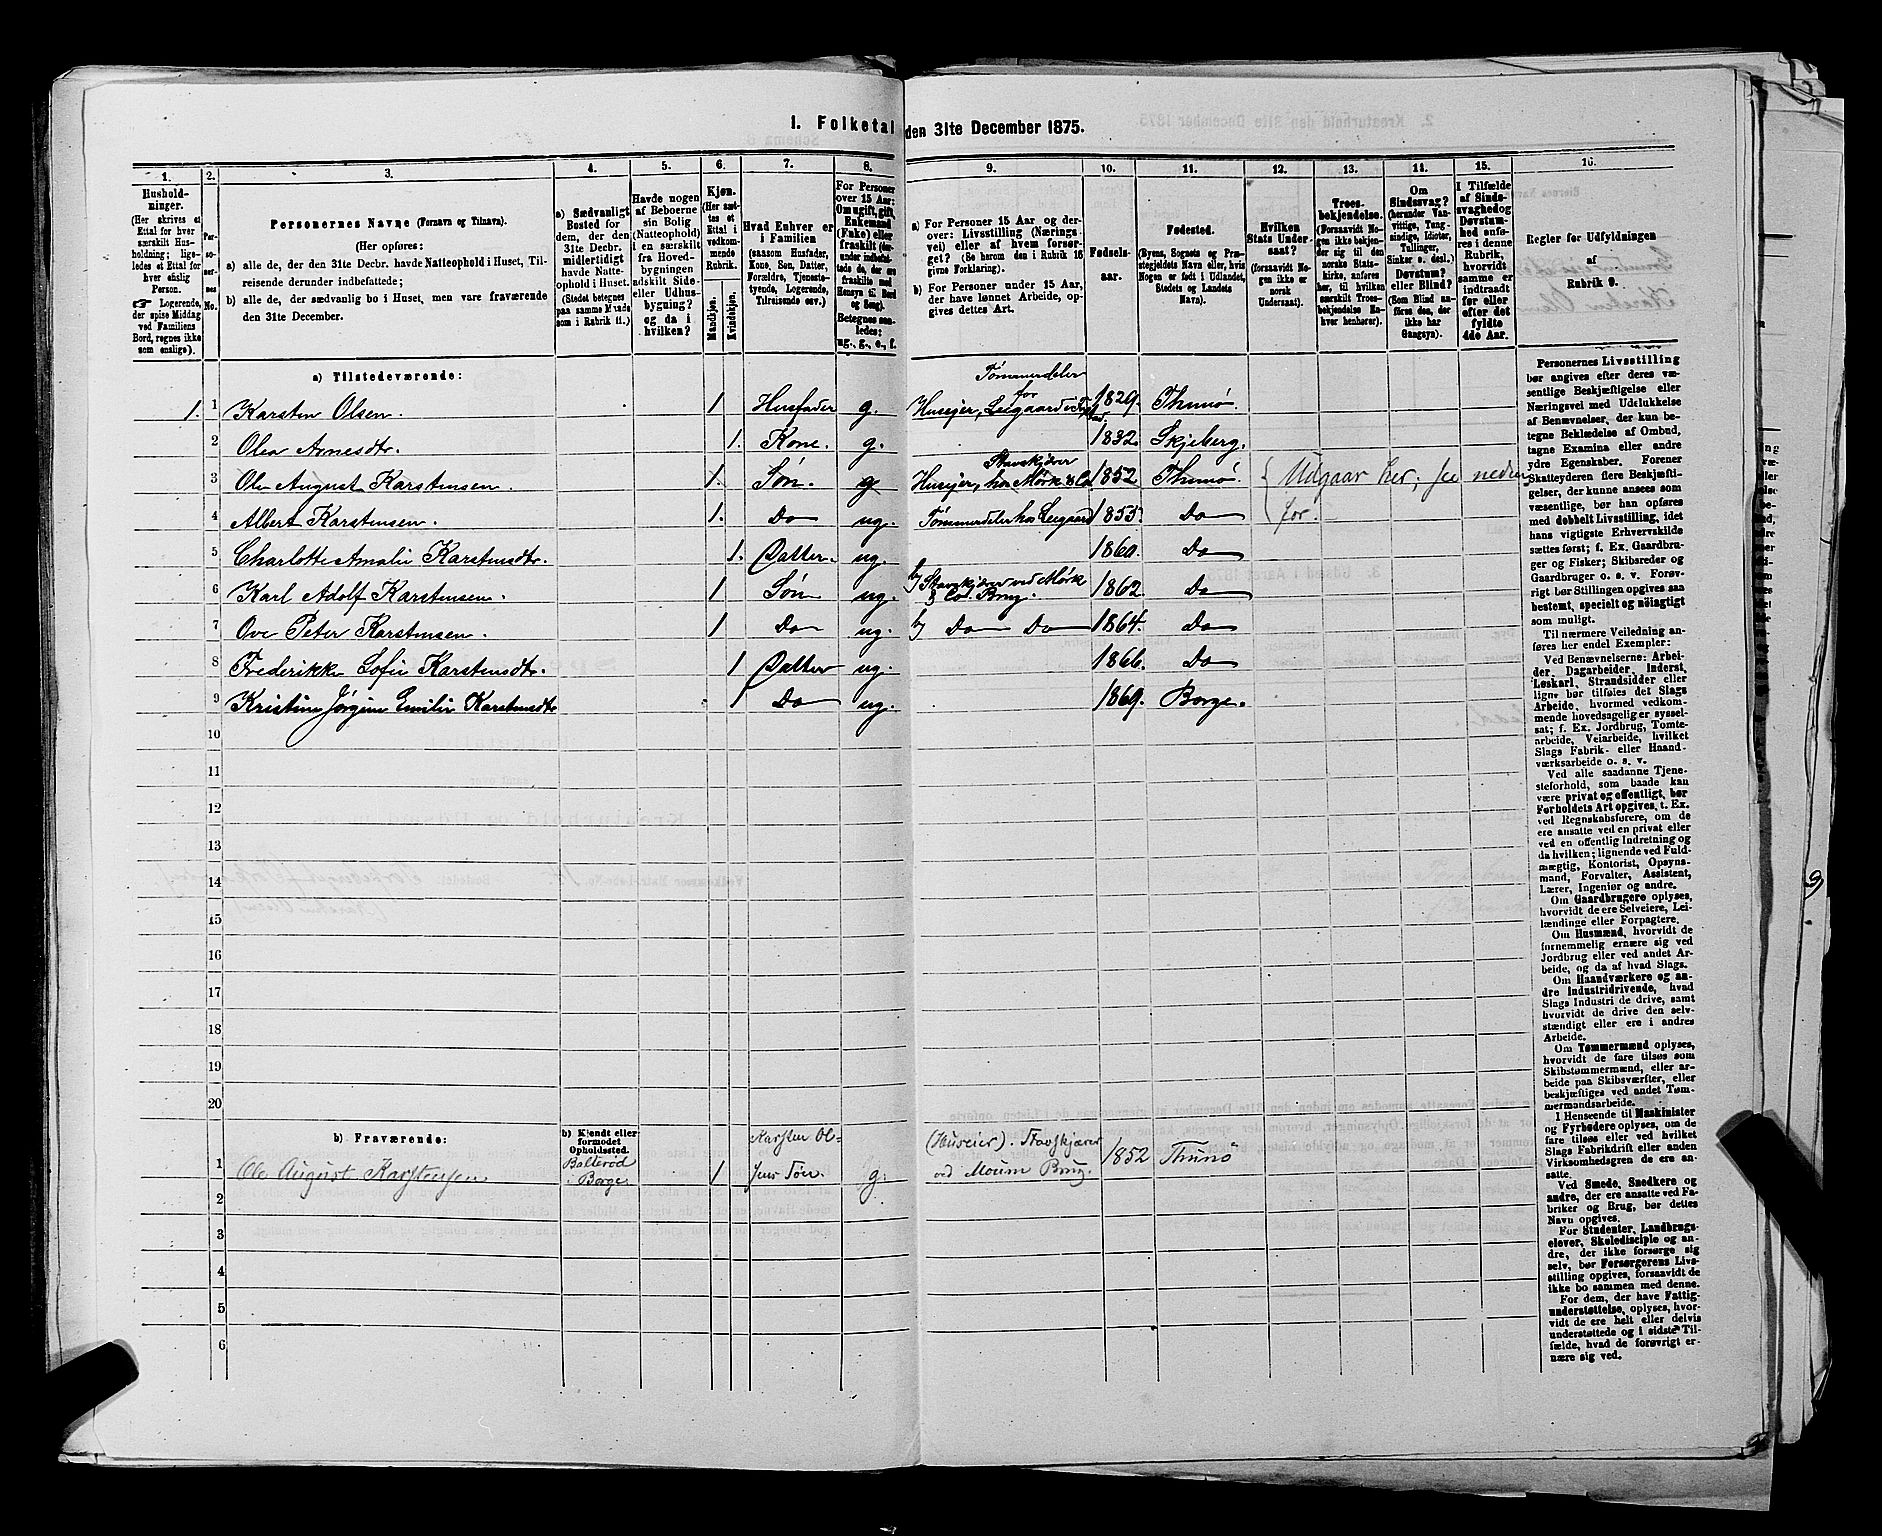 1. Folketal den 31te December 1875.
1. 2. 3. 4. 5. 6. 7. 8. 9. 10. 11. 12. 13. 14. 15. 16.
Hushold-
ninger.
(Her skrives et
Ettal for hver
særskilt Hus-
holdning; lige-
ledes et Ettal for
hver enslig
Person.
☞ Logerende,
der spise Middag
ved Familiens
Bord, regnes ikke
som enslige).
Per-
so-
ner-
nes
No.
Personernes Navne (Fornavn og Tilnavn).
(Her opføres:
a) alle de, der den 31te Decbr. havde Natteophold i Huset, Til-
reisende derunder indbefattede;
b) alle de, der sædvanlig bo i Huset, men vare fraværende
den 31te December.
a) Sædvanligt
Bosted for
dem, der den
31te Decbr.
midlertidigt
havde Natte-
ophold i Huset.
(Stedet betegnes
paa samme Maade
som i Rubrik 11.)
Havde nogen
af Beboerne
sin Bolig
(Natteophold)
i en særskilt
fra Hoved-
bygningen
adskilt Side-
eller Udhus-
bygning?
og da i
hvilken?
Kjøn.
(Her sæt-
tes et
Ettal i
vedkom-
mende
Rubrik.
Mandkjøn.
Kvindekjøn.
Hvad Enhver er
i Familien
(saasom Husfader,
Kone, Søn, Datter,
Forældre, Tjeneste-
tyende, Logerende,
Tilreisende osv.)
For Personer
over 15 Aar:
Om ugift, gift,
Enkemand
(Enke) eller
fraskilt (der-
under indbefat-
tede de, der ere
fraskilte med
Hensyn til Bord
og Seng).
Betegnes saa-
ledes:
ug., g., e., f.
a) For Personer 15 Aar og der-
over: Livsstilling (Nærings-
vei) eller af hvem forsør-
get? (Se herom den i Rubrik 16
givne Forklaring).
b) For Personer under 15 Aar,
der have lønnet Arbeide, op-
gives dettes Art.
Fødsels-
aar.
Fødested.
(Byens, Sognets og Præ-
stegjeldets Navn eller, hvis
Nogen er født i Udlandet,
Stedets og Landets
Navn).
Hvilken
Stats Under-
saat?
(forsaavidt No-
gen ikke er
norsk
Undersaat).
Troes-
bekjendelse.
(Forsaavidt No-
gen ikke bekjen-
der sig til den
norske Stats-
kirke, anføres
her, til hvilken
særskilt Troes-
bekjendelse En-
hver henhører).
Om
Sindssvag?
(herunder Van-
vittige, Tung-
sindige, Idioter,
Tullinger,
Sinker o. desl.)
Døvstum?
eller Blind?
(Som Blind an-
føres den, der
ikke har
Gangsyn).
I Tilfælde
af Sinds-
svaghed og
Døvstum-
hed anfø-
res i denne
Rubrik,
hvorvidt
samme er
indtraadt
før eller
efter det
fyldte
4de Aar.
Regler for Udfyldningen
af
Rubrik 9.
a) Tilstedeværende:
1. 1 Karsten Olsen. 1 Husfader g. Huseier, Tømmerdeler for 1829. Thunø.
2 Olea Arnesdtr. 1. Kone. g. 1832. Skjeberg.
3 Ole August Karstensen. 1. Søn. g Huseier, Stavskjærer hos Mørk & Co 1852. Thunø { Udgaar her; se neden
4 Albert Karstensen. 1. Do ug. Tømmerdeler hos 1855. Do for.
5 Charlotte Amalie Karstensdtr. 1. Datter. ug. 1860. Do
6 Karl Adolf Karstensen. 1 Søn ug. b) Stavskjærer ved Mørk & Co. Brug. 1862. Do
7 Ove Peter Karstensen. 1 Do ug. b) Do Do 1864. Do
8 Frederikke Sofie Karstensdtr. 1 Datter ug. 1866. Do
9 Kristine Jørgine Emilie Karstensdtr. 1 Do ug. 1869. Borge.
10
11
12
13
14
15
16
17
18
19
20
b) Fraværende:
b) Kjendt eller
formodet
Opholdssted.
1 Ole August Karstensen Borge 1 Karsten Ol-
sens Søn. g. (Huseier). Stavskjærer
ved Brug. 1852 Thunø
2
3
4
5
6
Personernes Livsstilling
bør angives efter deres væ-
sentlige Beskjæftigelse eller
Næringsvei med Udelukkelse
af Benævnelser, der kun be-
tegne Beklædelse af Ombud,
tagne Examina eller andre
ydre Egenskaber. Forener
Skatteyderen flere Beskjæfti-
gelser, der kunne ansees som
væsentlige, bør han opføres
med dobbelt Livsstilling, idet
hans vigtigste Erhvervskilde
sættes først; f. Ex. Gaardbru-
ger og Fisker; Skibsreder og
Gaardbruger o. s. v. Forøv-
rigt bør Stillingen opgives saa
bestemt, specielt og nøiagtigt
som muligt.
Til nærmere Veiledning an-
føres her endel Exempler:
Ved Benævnelserne: Arbei-
der, Dagarbeider, Inderst,
Løskarl, Strandsidder eller
ligne bør tilføies det Slags
Arbeide, hvormed vedkom-
mende hovedsagelig er syssel-
sat; f. Ex. Jordbrug, Tomte-
arbeide, Veiarbeide, hvilket
Slags Fabrik- eller Haand-
værksarbeide o. s. v.
Ved alle saadanne Tjene-
steforhold, som baade kan
være privat og offentligt, bør
Forholdets Art opgives, t. Ex.
ved Regnskabsførere, om de
ere ansatte ved en privat eller
ved en offentlig Indretning og
da hvilken; lignende ved Fuld-
mægtig, Kontorist, Opsyns-
mand, Forvalter, Assistent,
Lærer, Ingeniør og andre.
Om Gaardbrugere oplyses,
hvorvidt de ere Selveiere, Lei-
lændinge eller Forpagtere.
Om Husmænd, hvorvidt de
fornemmelig ernære sig ved
Jordbrug eller ved andet Ar-
beide, og da af hvad Slags.
Om Haandværkere og an-
dre Industridrivende, hvad
Slags Industri de drive, samt
hvorvidt de drive den selv-
stændigt eller ere i andres
Arbeide.
Om Tømmermænd oplyses,
hvorvidt de fare tilsøs som
Skibstømmermænd, eller ar-
beide paa Skibsværfter, eller
beskjæftiges ved andet Tøm-
mermandsarbeide.
I Henseende til Maskinister
og Fyrbødere oplyses, om de
fare tilsøs eller ved hvilket
Slags Fabrikdrift eller anden
Virksomhedsgren de ere an-
satte.
Ved Smede, Snedkere og
andre, der ere ansatte ved Fa-
briker og Brug, bør dettes
Navn opgives.
For Studenter, Landbrugs-
elever, Skoledisciple og an-
dre, der ikke forsørge sig
selv, bør Forsørgerens Livs-
stilling opgives, forsaavidt de
ikke bo sammen med denne.
For dem, der have Fattig-
understøttelse, oplyses, hvor-
vidt de ere helt eller delvis
understøttede og i sidste Til-
fælde, hvad de forøvrigt er-
nære sig ved.